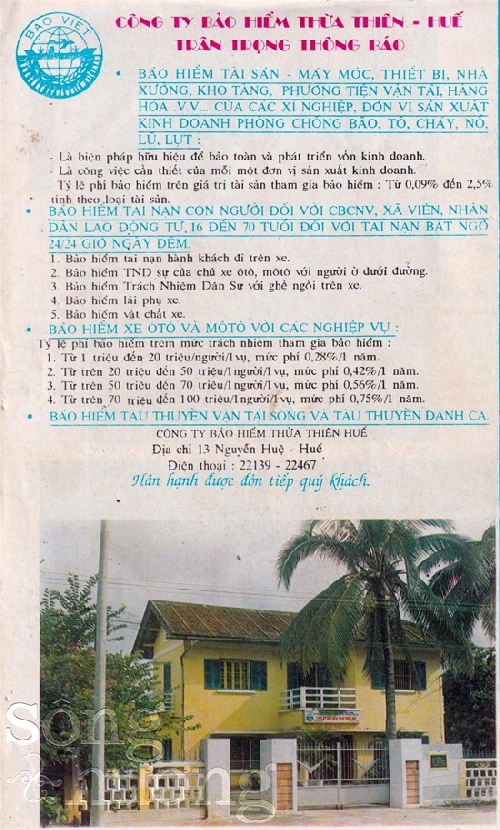 BẢO VIỆT
CÔNG TY BẢO HIỂM THỪA THIÊN - HUẾ
TRÂN TRỌNG THÔNG BÁO
• BẢO HIỂM TÀI SẢN - MÁY MÓC, THIẾT BỊ, NHÀ
XƯỞNG, KHO TÀNG, PHƯƠNG TIỆN VẬN TẢI, HÀNG
HÓA .V.V... CỦA CÁC XÍ NGHIỆP, ĐƠN VỊ SẢN XUẤT
KINH DOANH PHÒNG CHỐNG BÃO, TỐ, CHÁY, NỔ,
LŨ, LỤT :
- Là biện pháp hữu hiệu để bảo toàn và phát triển vốn kinh doanh.
- Là công việc cần thiết của mỗi một đơn vị sản xuất kinh doanh.
Tỷ lệ phí bảo hiểm trên giá trị tài sản tham gia bảo hiểm : Từ 0,09% đến 2,5%
tính theo loại tài sản.
• BẢO HIỂM TAI NẠN CON NGƯỜI ĐỐI VỚI CBCNV, XÃ VIÊN, NHÂN
DÂN LAO ĐỘNG TỪ 16 ĐẾN 70 TUỔI ĐỐI VỚI TAI NẠN BẤT NGỜ
24/24 GIỜ NGÀY ĐÊM.
1. Bảo hiểm tai nạn hành khách đi trên xe.
2. Bảo hiểm TND sự của chủ xe ôtô, môtô với người ở dưới đường.
3. Bảo hiểm Trách Nhiệm Dân Sự với ghế ngồi trên xe.
4. Bảo hiểm lái phụ xe.
5. Bảo hiểm vật chất xe.
• BẢO HIỂM XE ÔTÔ VÀ MÔTÔ VỚI CÁC NGHIỆP VỤ :
Tỷ lệ phí bảo hiểm trêm mức trách nhiem tham gia bảo hiểm :
1. Từ 1 triệu đến 20 triệu/người/1vụ, mức phí 0,28%/1 năm.
2. Từ trên 20 triệu đến 50 triệu/1người/1vụ, mức phí 0,42%/1 năm.
3. Từ trên 50 triệu đến 70 triệu/1người/1vụ, mức phí 0,56%/1 năm.
4. Từ trên 70 triệu đến 100 triệu/1người/1vụ, mức phí 0,75%/1 năm.
• BẢO HIỂM TÀU THUYỀN VẬN TẢI SÔNG VÀ TÀU THUYỀN ĐÁNH CÁ.
CÔNG TY BẢO HIỂM THỪA THIÊN HUẾ
Địa chỉ 13 Nguyễn Huệ - Huế
Điện thoại : 22139 - 22467
Hân hạnh được đón tiếp quý khách.
Sông
hương